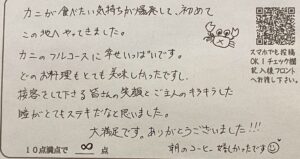 カニが食べたい気持ちが爆発して、初めて
この地へやってきました。
カニのフルコースに幸せいっぱいです。
どの料理もとても美味しかったですし、
接客をして下さる皆さんの笑顔とご主人のキラキラした
瞳がとてもステキだなと思いました。
大満足です。ありがとうございました!!!
10点満点で ∞ 点
朝のコーヒーも嬉しかったです
スマホでも投稿
OK!チェック欄
記入後フロント
へお渡し下さい。